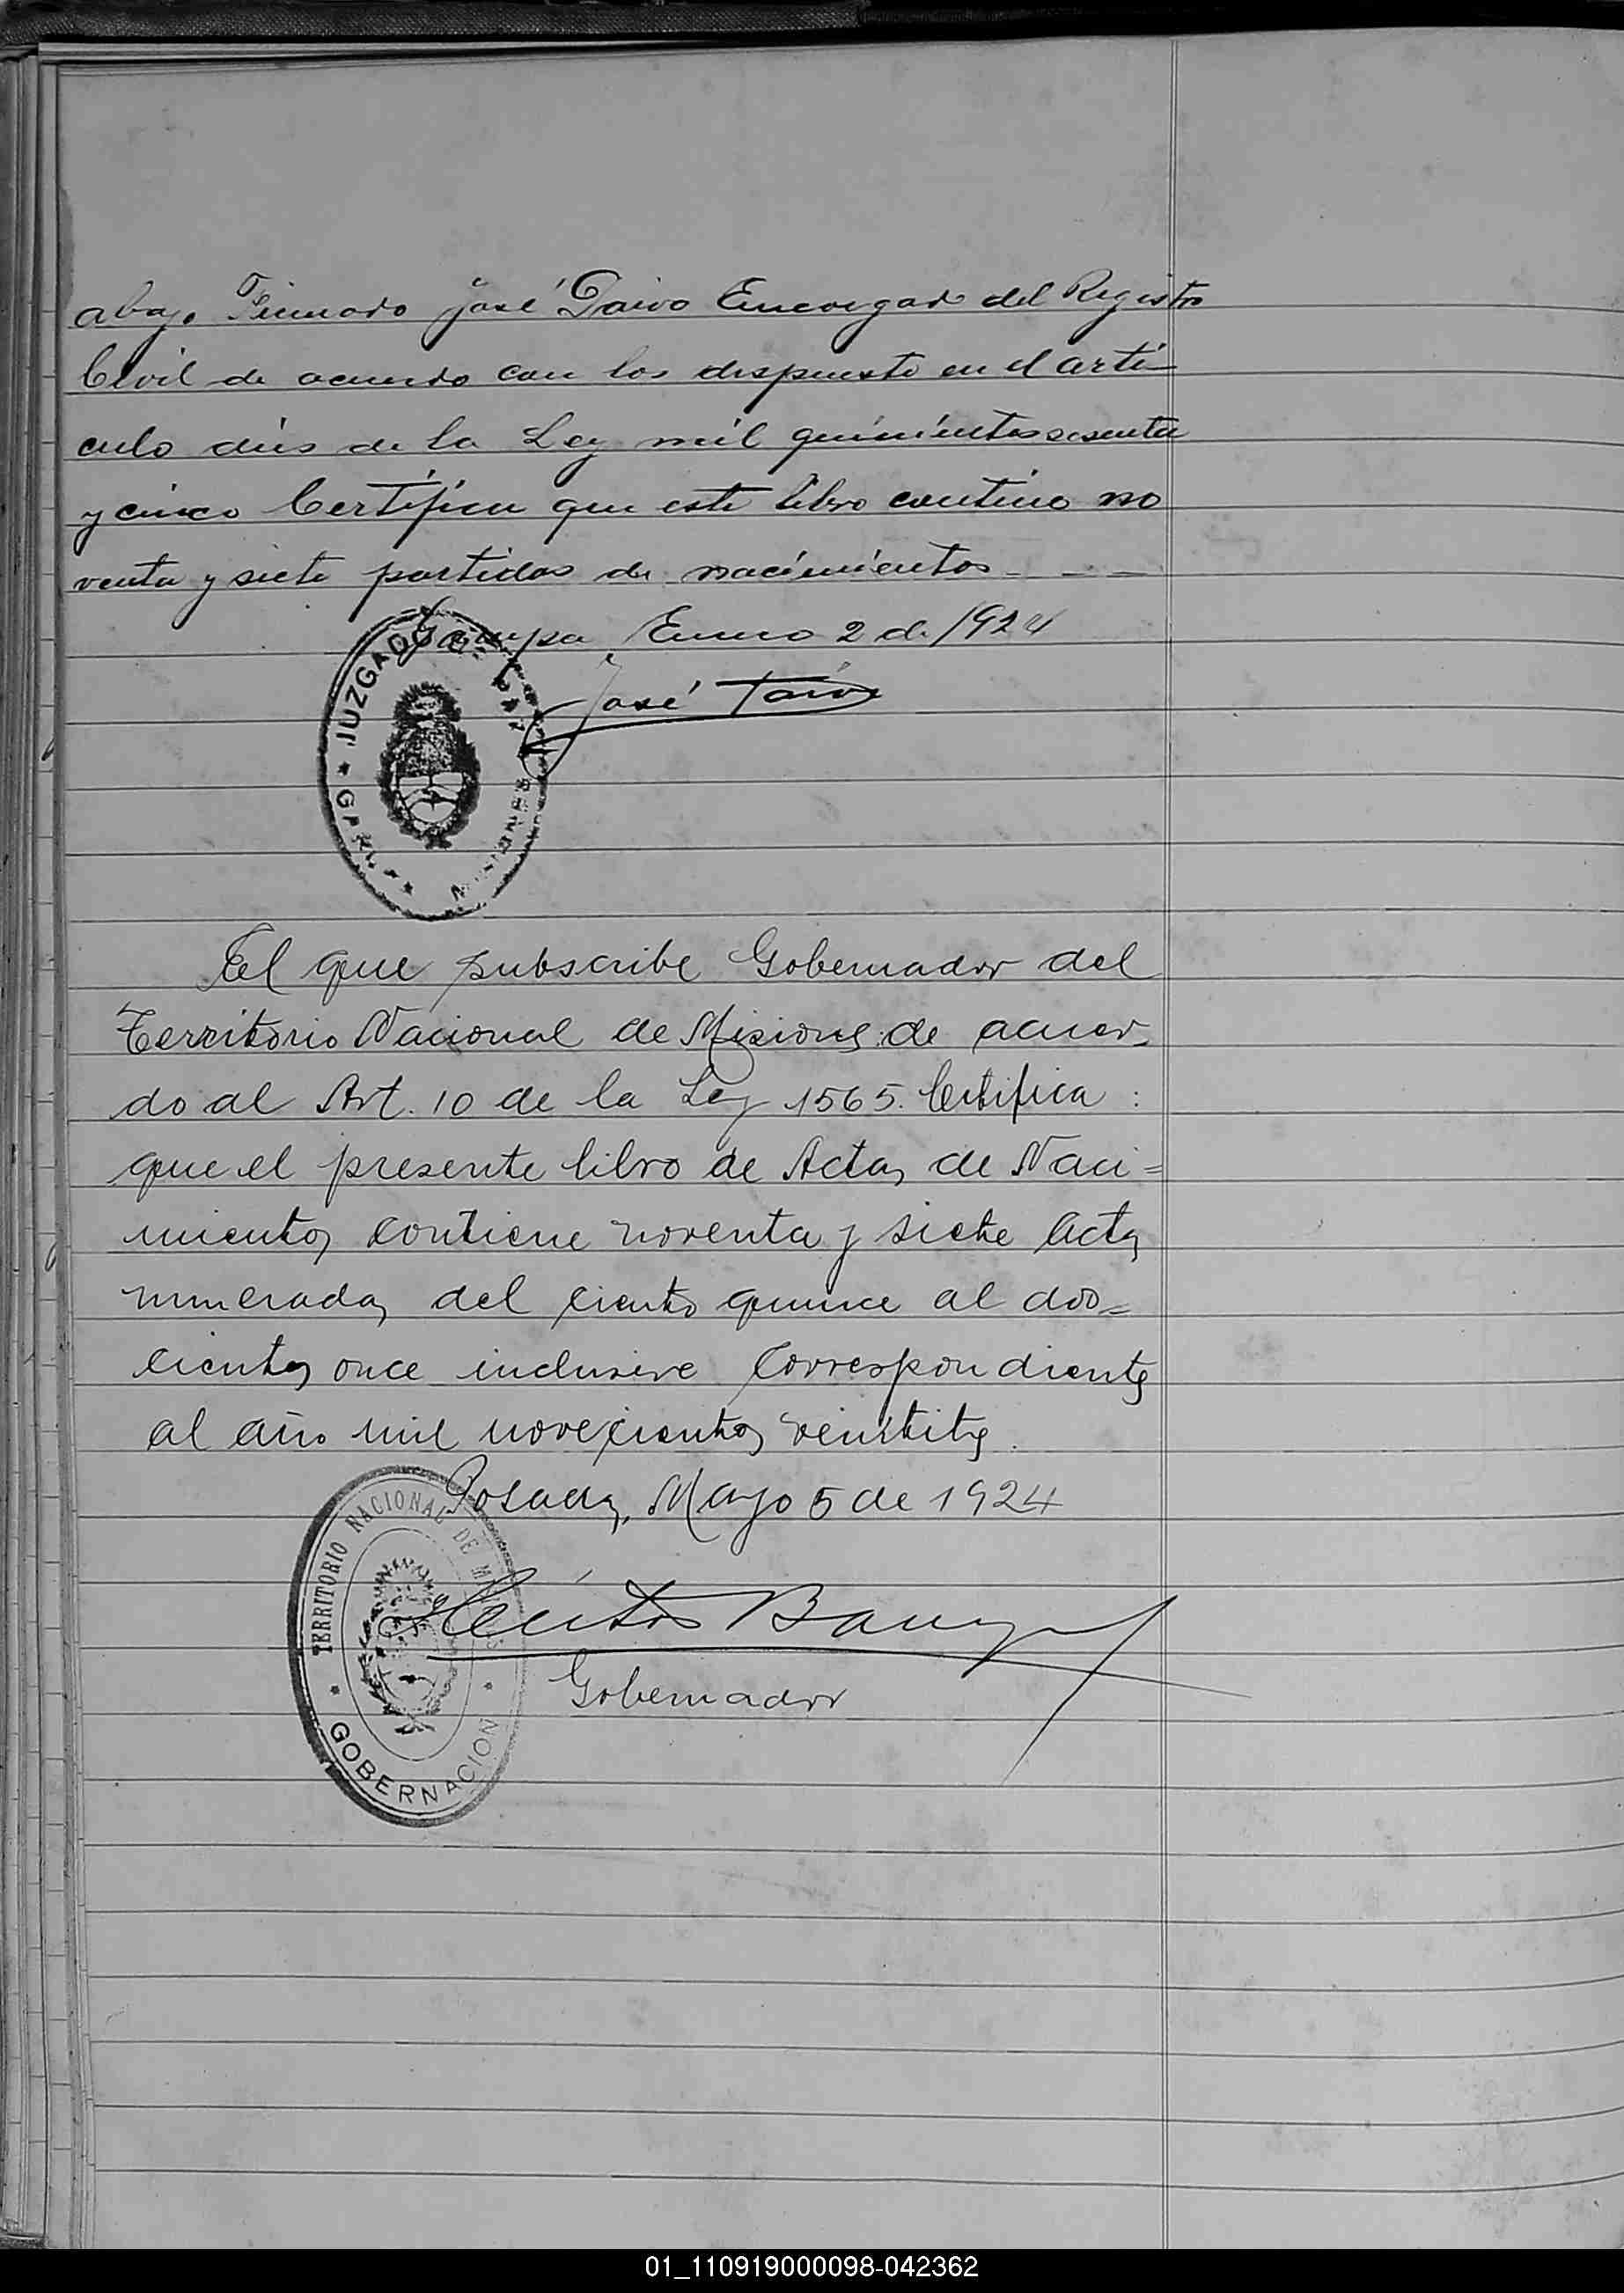 abajo Firmado José Paiva Encargado del Registro
Civil de acuerdo con los dispuesto en el artí-
culo diés de la Ley mil quinientos sesenta
y cinco Certifica que este libro contine no
venta y siete partidas de nacimientos
Garupa, Enero 2 de 1924
José Paiva
JUZGADO
El que subscribe Gobernador del
Territorio Nacional de Misiones de acuer-
do al Art. 10 de la Ley 1565. Certifica:
que el presente libro de Actas de Naci=
mientos contiene noventa y siete Actas
numeradas del ciento quince al dos=
cientos once inclusive correspondientes
al año mil novecientos veintitrés.
Posadas, Mayo 5 de 1924
TERRITORIO NACIONAL DE
Héctor
Gobernador
GOBERNACION
01_110919000098-042362